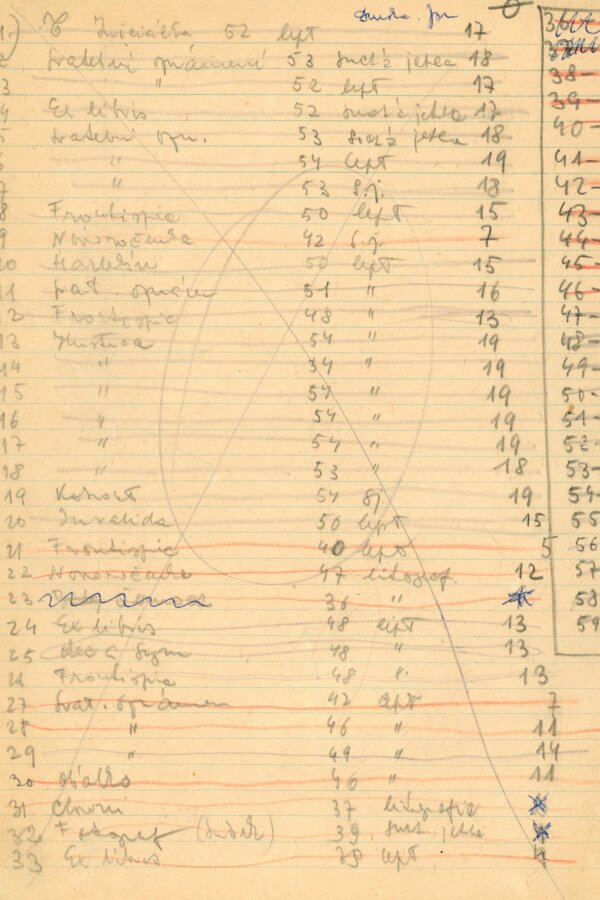 1.) C Iniciálka 52 lept 17
2 Svatební oznámení 53 suchá jehla 18
3 " 52 lept 17
4 Ex libris 52 suchá jehla 17
5 Svatební ozn. 53 suchá jehla 18
6 " 54 lept 19
7 " 53 s.j. 18
8 Frontispic 50 lept 15
9 Novoročenka 42 s.j. 7
10 50 lept 15
11 svat. oznám 51 " 16
12 Frontispic 48 " 13
13 Ilustrace 54 " 19
14 " 54 " 19
15 " 54 " 19
16 " 54 " 19
17 " 54 " 19
18 " 53 " 18
19 Kohout 54 sj. 19
20 Invalida 50 lept 15
21 Frontispic 40 lept 5
22 Novoročenka 47 litograf. 12
23 36 "
24 Ex libris 48 lept 13
25 48 " 13
26 Frontispic 48 " 13
27 Svat. oznámení 42 lept 7
28 " 46 " 11
29 " 49 " 14
30 obálka 46 " 11
31 Clown 37 litografie
32 Fotograf (Sudek) 39 such. jehla
33 Ex libris 38 lept
38-
39-
40-
41-
42-
43-
44-
45-
46-
47-
48-
49-
50-
51-
52-
53-
54-
55
56
57
58
59